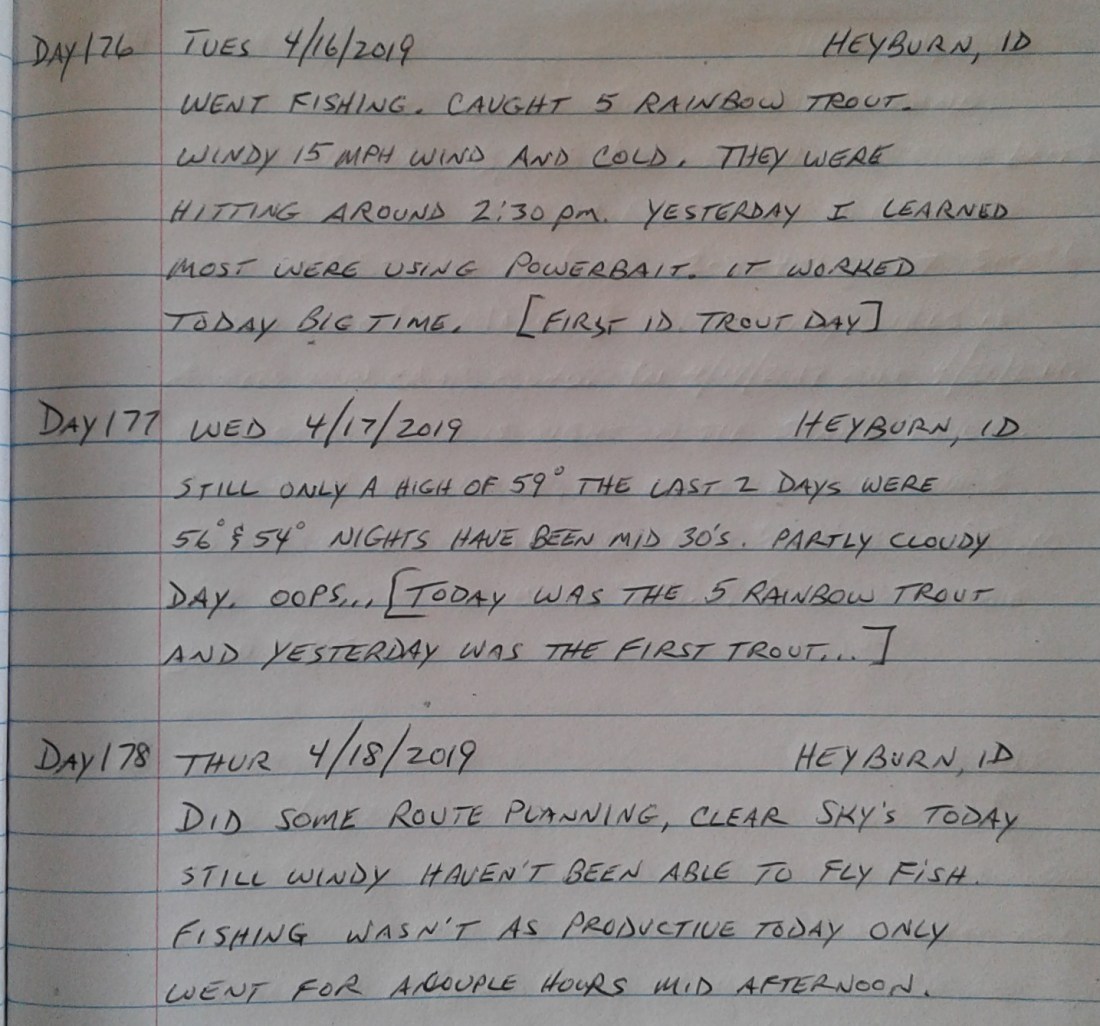 DAY 176 TUES 4/16/2019 HEYBURN, ID
WENT FISHING. CAUGHT 5 RAINBOW TROUT.
WINDY 15 MPH WIND AND COLD. THEY WERE
HITTING AROUND 2:30 pm. YESTERDAY I LEARNED
MOST WERE USING POWERBAIT. IT WORKED
TODAY BIG TIME. [FIRST ID TROUT DAY]
DAY 177 WED 4/17/2019 HEYBURN, ID
STILL ONLY A HIGH OF 59° THE LAST 2 DAYS WERE
56° & 54° NIGHTS HAVE BEEN MID 30's. PARTLY CLOUDY
DAY. OOPS... [TODAY WAS THE 5 RAINBOW TROUT
AND YESTERDAY WAS THE FIRST TROUT...]
DAY 178 THUR 4/18/2019 HEYBURN, ID
DID SOME ROUTE PLANNING, CLEAR SKY'S TODAY
STILL WINDY HAVEN'T BEEN ABLE TO FLY FISH.
FISHING WASN'T AS PRODUCTIVE TODAY ONLY
WENT FOR A COUPLE HOURS MID AFTERNOON.